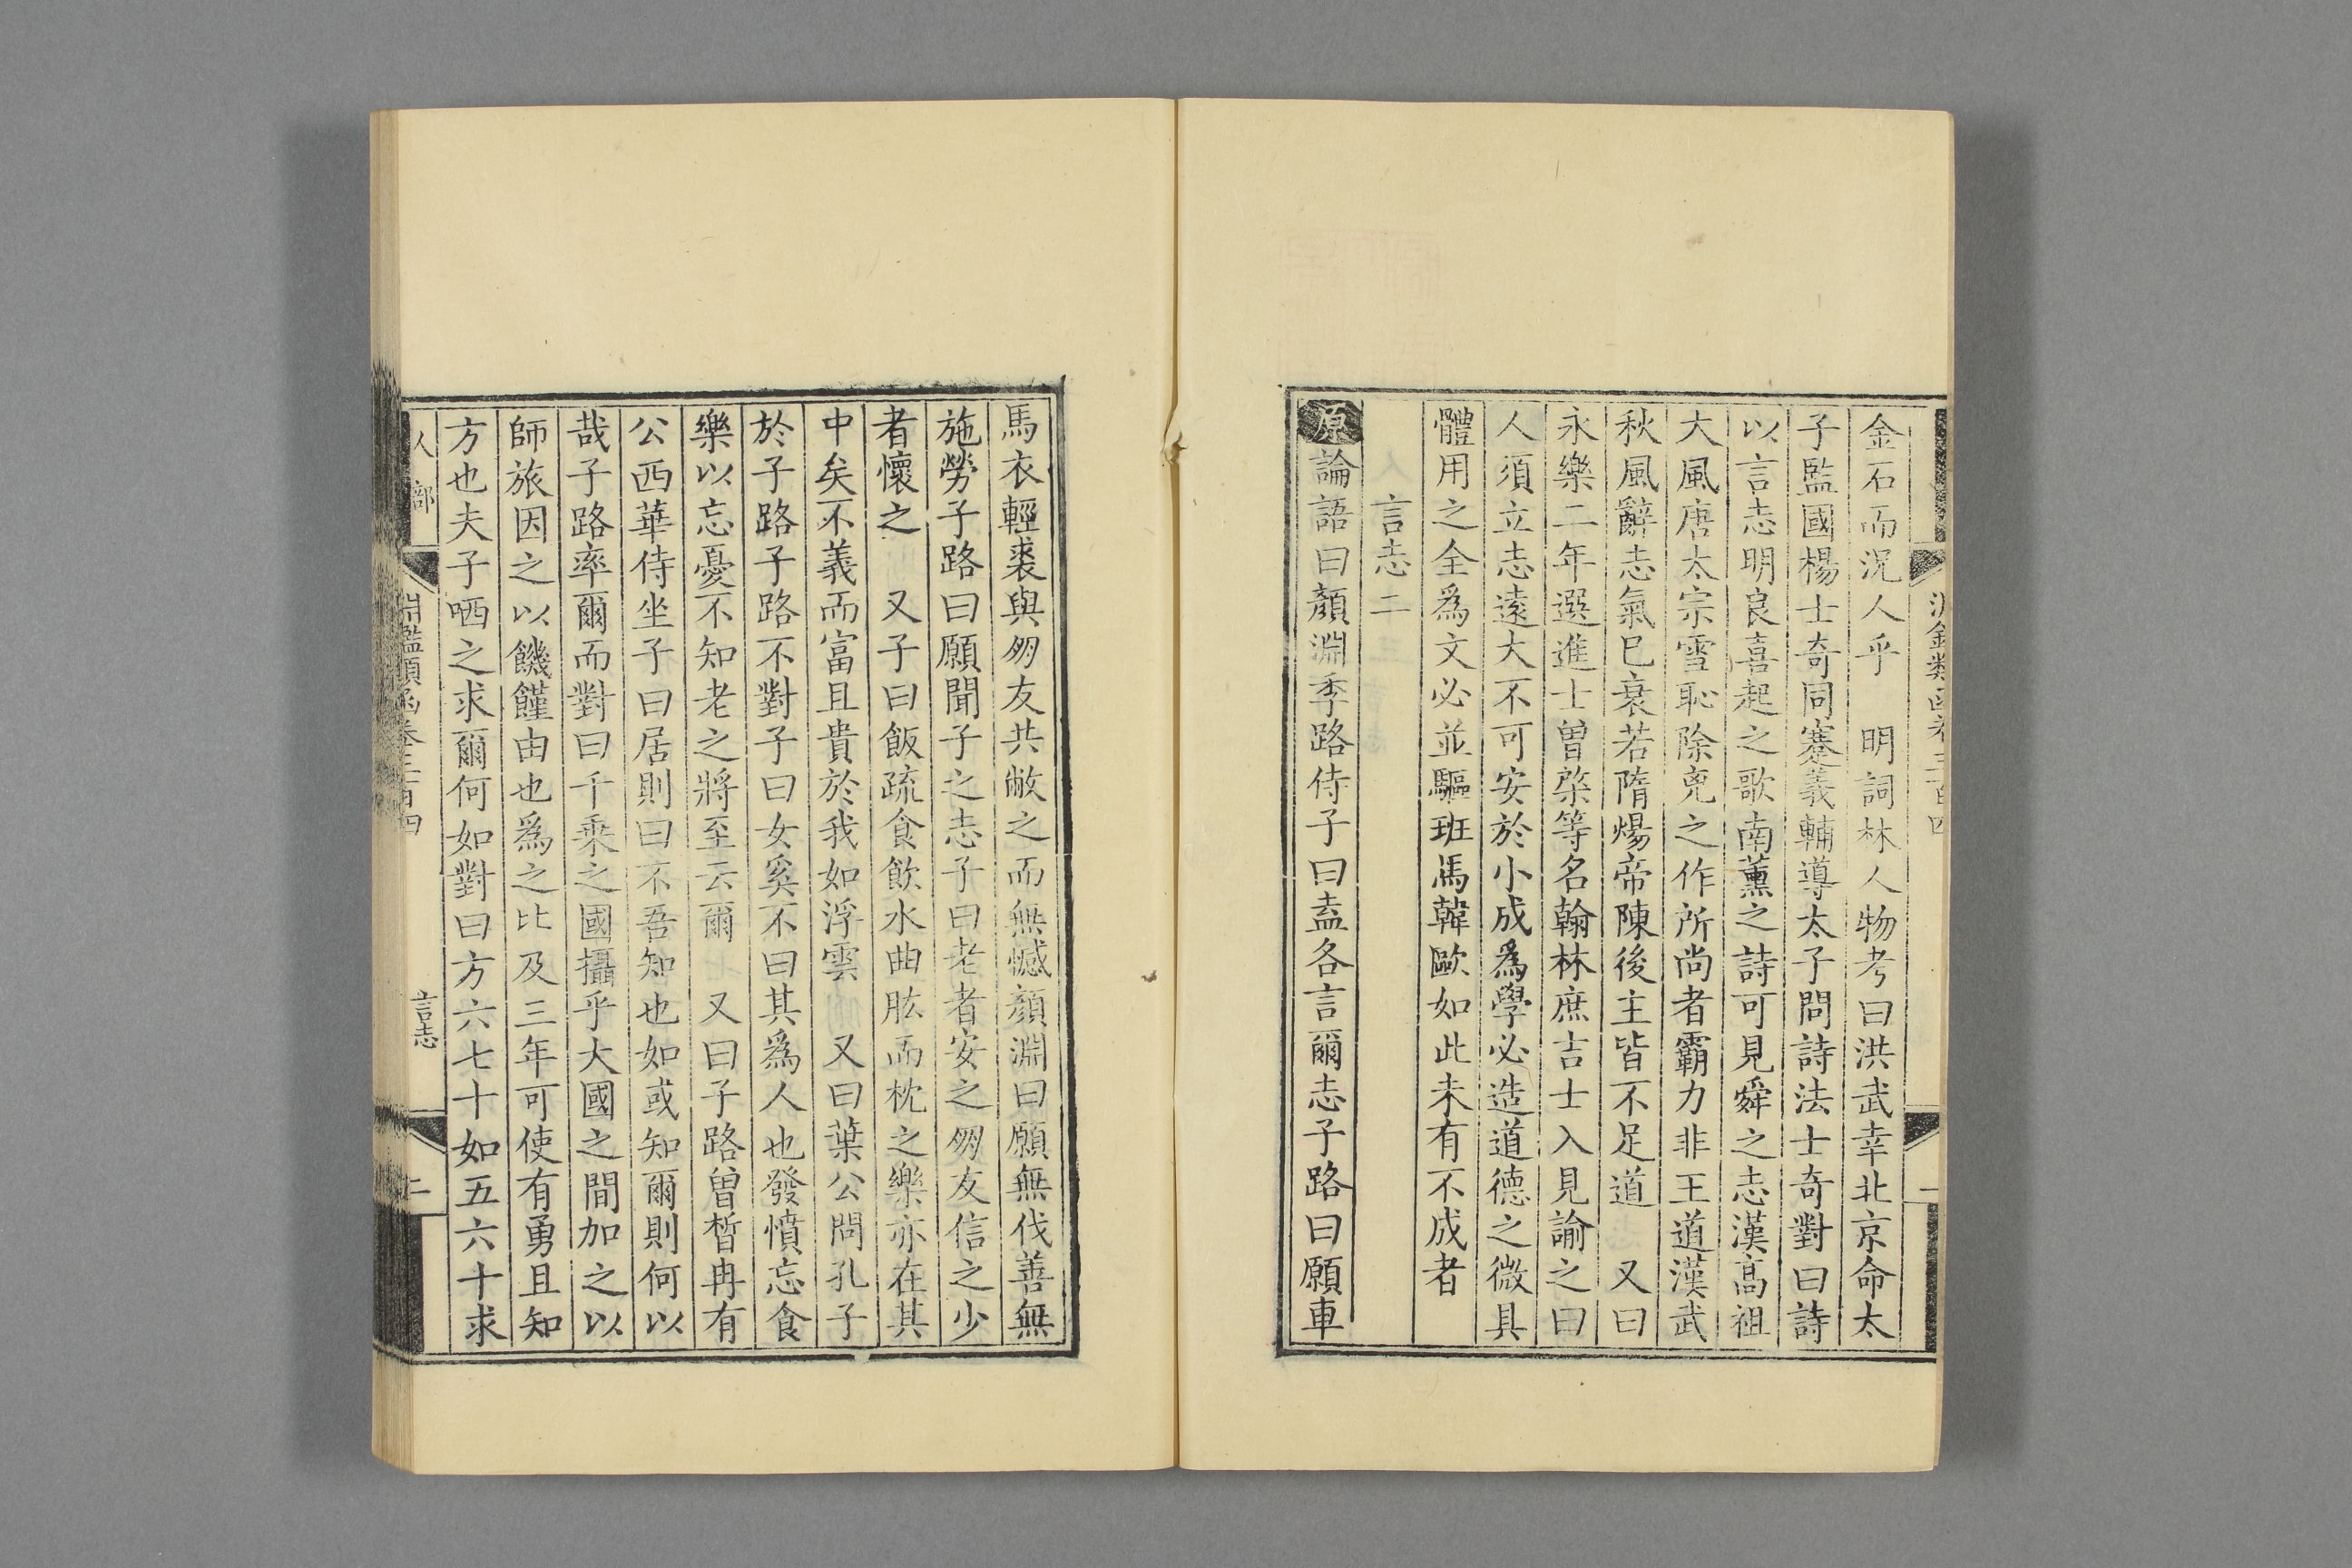 金石而况人乎　明詞林人物考曰洪武幸北京命太
子監國楊士奇同蹇義輔導太子問詩法士奇對曰詩
以言志明良喜起之歌南薰之詩可見舜之志漢高祖
大風唐太宗雪恥除兇之作所尚者霸力非王道漢武
秋風辭志氣已衰若隋煬帝陳後主皆不足道　又曰
永樂二年選進士曾棨等名翰林庶吉士入見諭之曰
人須立志遠大不可安於小成爲學必造道德之微具
體用之全爲文必並驅班馬韓歐如此未有不成者
言志二
原論語曰顏淵季路侍子曰盍各言爾志子路曰願車
馬衣輕裘與朋友共敝之而無憾顏淵曰願無伐善無
施勞子路曰願聞子之志子曰老者安之朋友信之少
者懷之　又子曰飯疏食飲水曲肱而枕之樂亦在其
中矣不義而富且貴於我如浮雲　又曰葉公問孔子
於子路子路不對子曰女奚不曰其爲人也發憤忘食
樂以忘憂不知老之將至云爾　又曰子路曾皙冉有
公西華侍坐子曰居則曰不吾知也如或知爾則何以
哉子路率爾而對曰千乘之國攝乎大國之間加之以
師旅因之以饑饉由也爲之比及三年可使有勇且知
方也夫子哂之求爾何如對曰方六七十如五六十求
人部　淵鑑類函卷三百四　言志　二